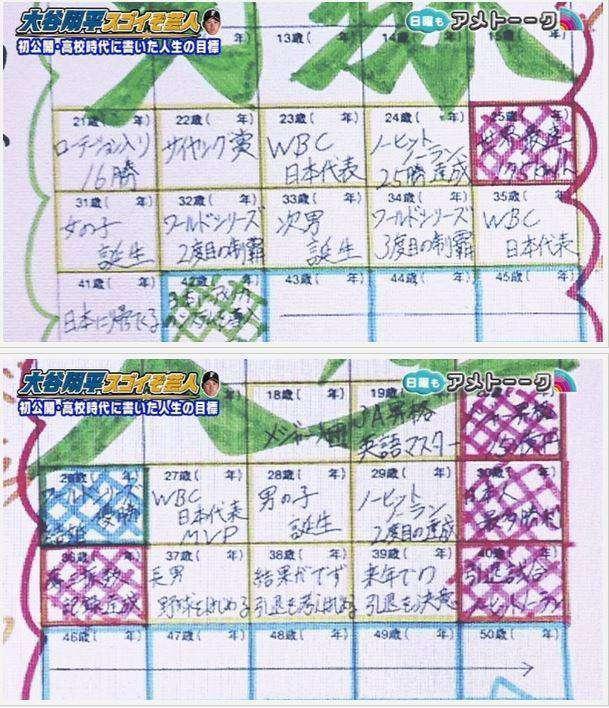 大谷翔平スゴイぞ芸人
初公開・高校時代に書いた人生の目標
日曜も アメトーーク
年)
13歳( 年)
21歳( 年)
ローテーション入り
16勝
22歳( 年)
サイヤング賞
23歳( 年)
WBC
日本代表
24歳( 年)
ノーヒット
ノーラン
25勝達成
25歳( 年)
世界最速
175km/h
31歳( 年)
女の子
誕生
32歳( 年)
ワールドシリーズ
2度目の制覇
33歳( 年)
次男
誕生
34歳( 年)
ワールドシリーズ
3度目の制覇
35歳( 年)
WBC
日本代表
41歳( 年)
日本に帰ってくる
42歳( 年)
43歳( 年)
44歳( 年)
45歳( 年)
大谷翔平スゴイぞ芸人
初公開・高校時代に書いた人生の目標
日曜も アメトーーク
18歳( 年)
メジャー入団
19歳( 年)
3A昇格
英語マスター
メジャー昇格
15億円
26歳( 年)
ワールドシリーズ
優勝
結婚
27歳( 年)
WBC
日本代表
MVP
28歳( 年)
男の子
誕生
29歳( 年)
ノーヒット
ノーラン
2度目の達成
30歳( 年)
日本人
最多勝利
36歳( 年)
記録達成
37歳( 年)
長男
野球をはじめる
38歳( 年)
結果がでず
引退も考えはじめる
39歳( 年)
来年での
引退を決意
40歳( 年)
引退試合
ノーヒットノーラン
46歳( 年)
47歳( 年)
48歳( 年)
49歳( 年)
50歳( 年)